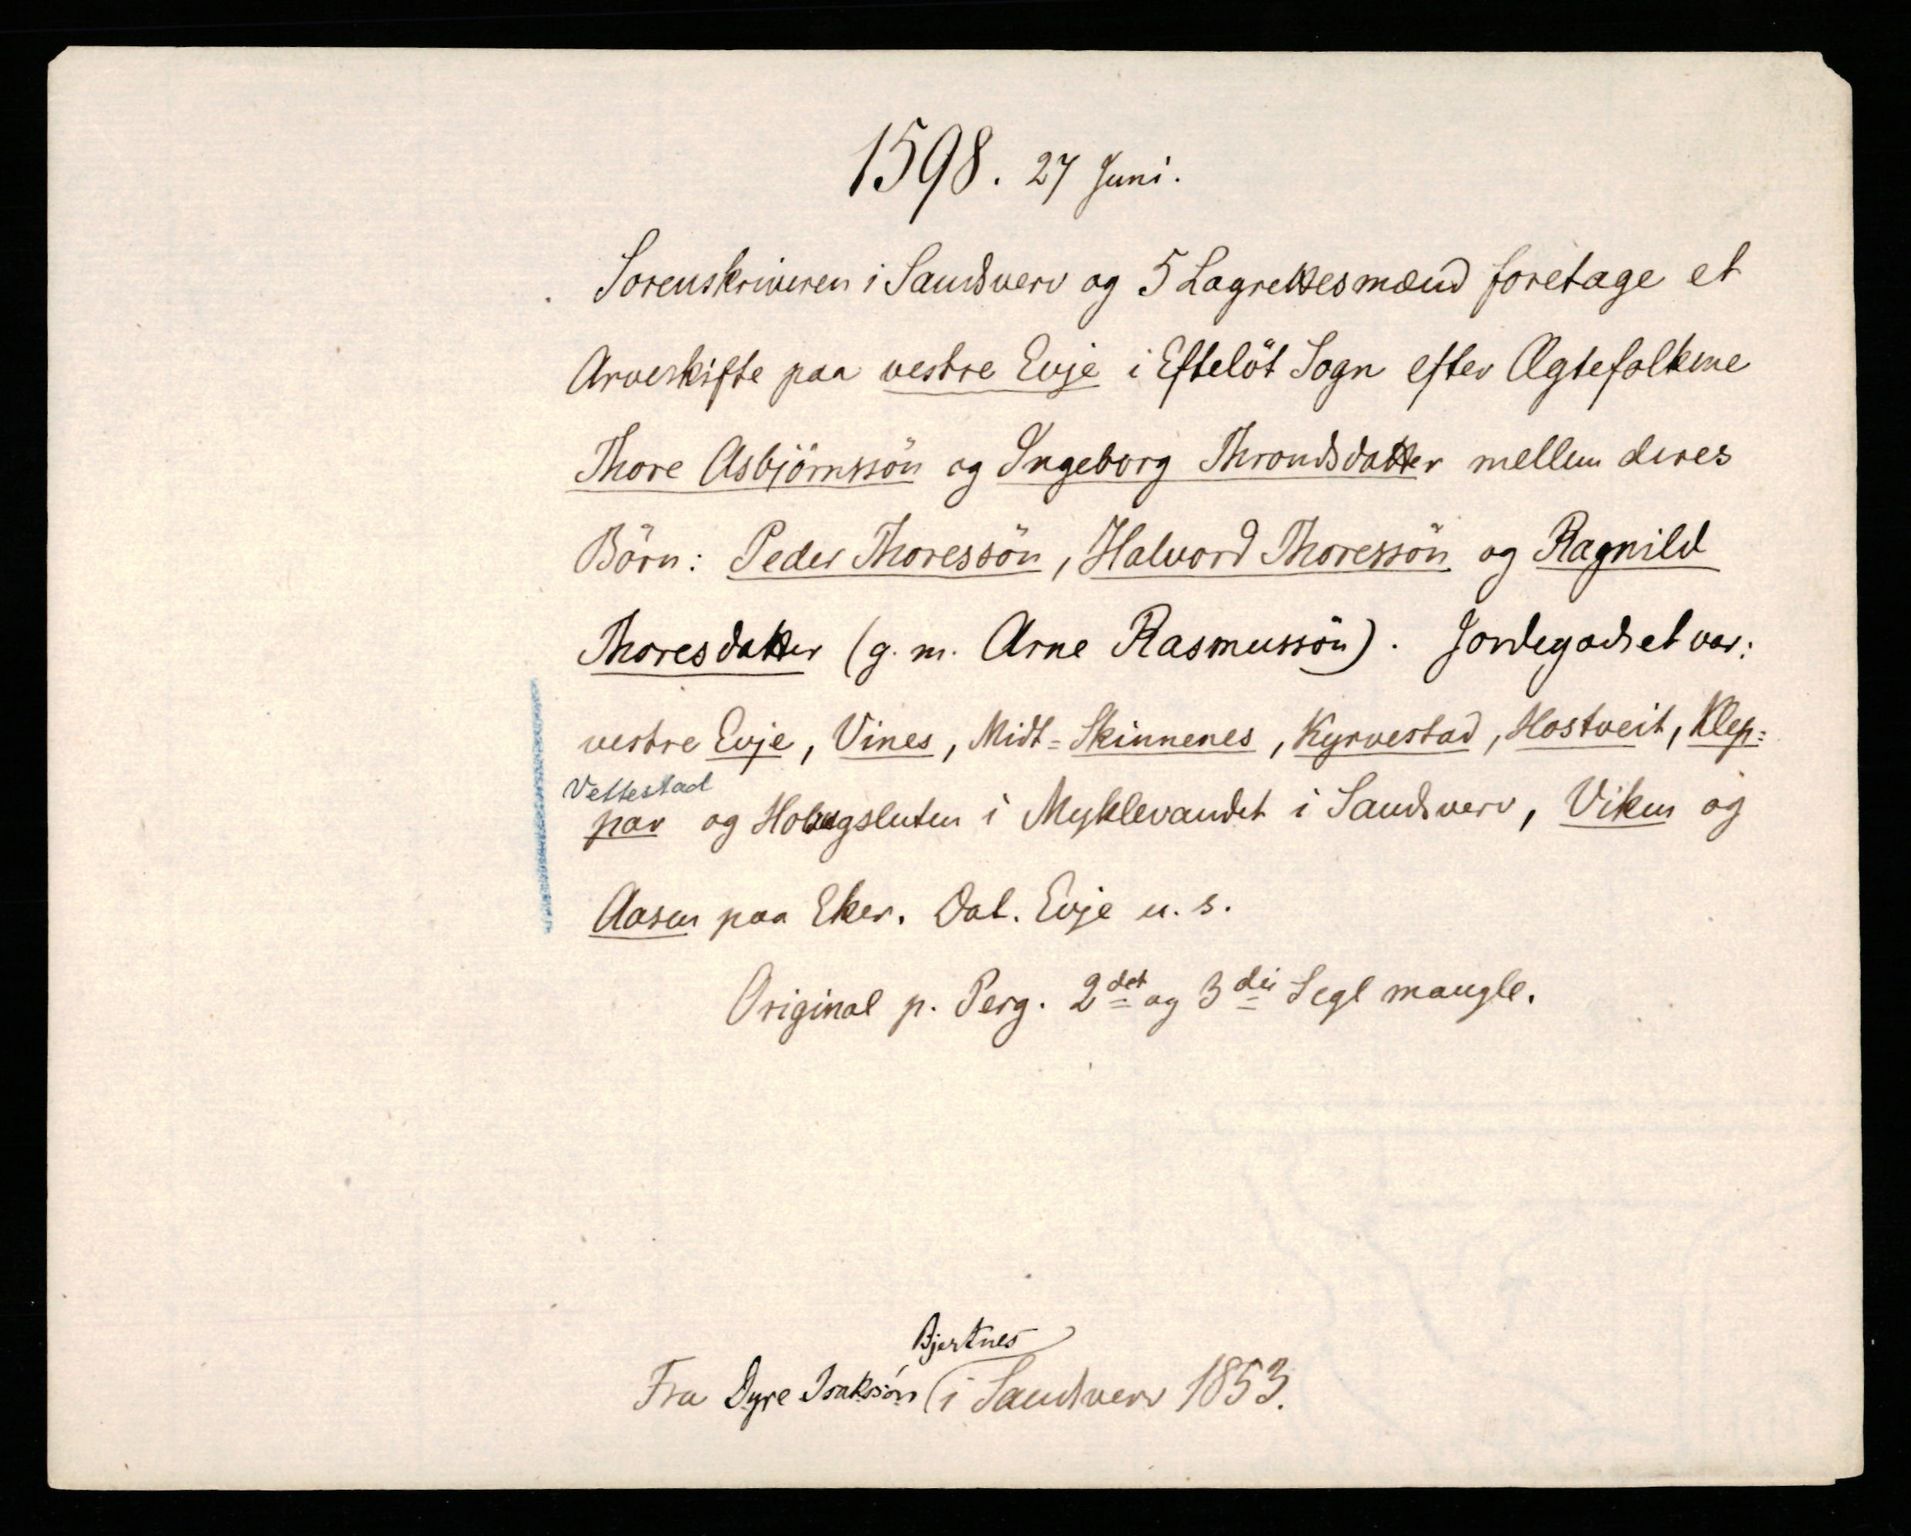 1598. 27 Juni.
Sorenskriveren i Sandsverv og 5 Lagrettesmænd foretage et
Arveskifte paa vestre Evje i Efteløt Sogn efter Ægtefolkene
Thore Asbjörnssön og Ingeborg Throndsdatter mellem deres
Börn: Peder Thoressön, Halvord Thoressön og Ragnild
Thoresdatter (g. m. Arne Rasmussön). Jordegodset var:
vestre Evje, Vines, Midt-Skinnenes, Kyrvestad, Hostveit, Klep-
Vettestad
par og i Myklevandet i Sandsverv, Viken og
Aasen paa Eker. Dat. Evje u. s.
Original p. Perg. 2det og 3die Segl mangle.
Bjertnes
Fra Dyre Isakssön i Sandsverv 1853.